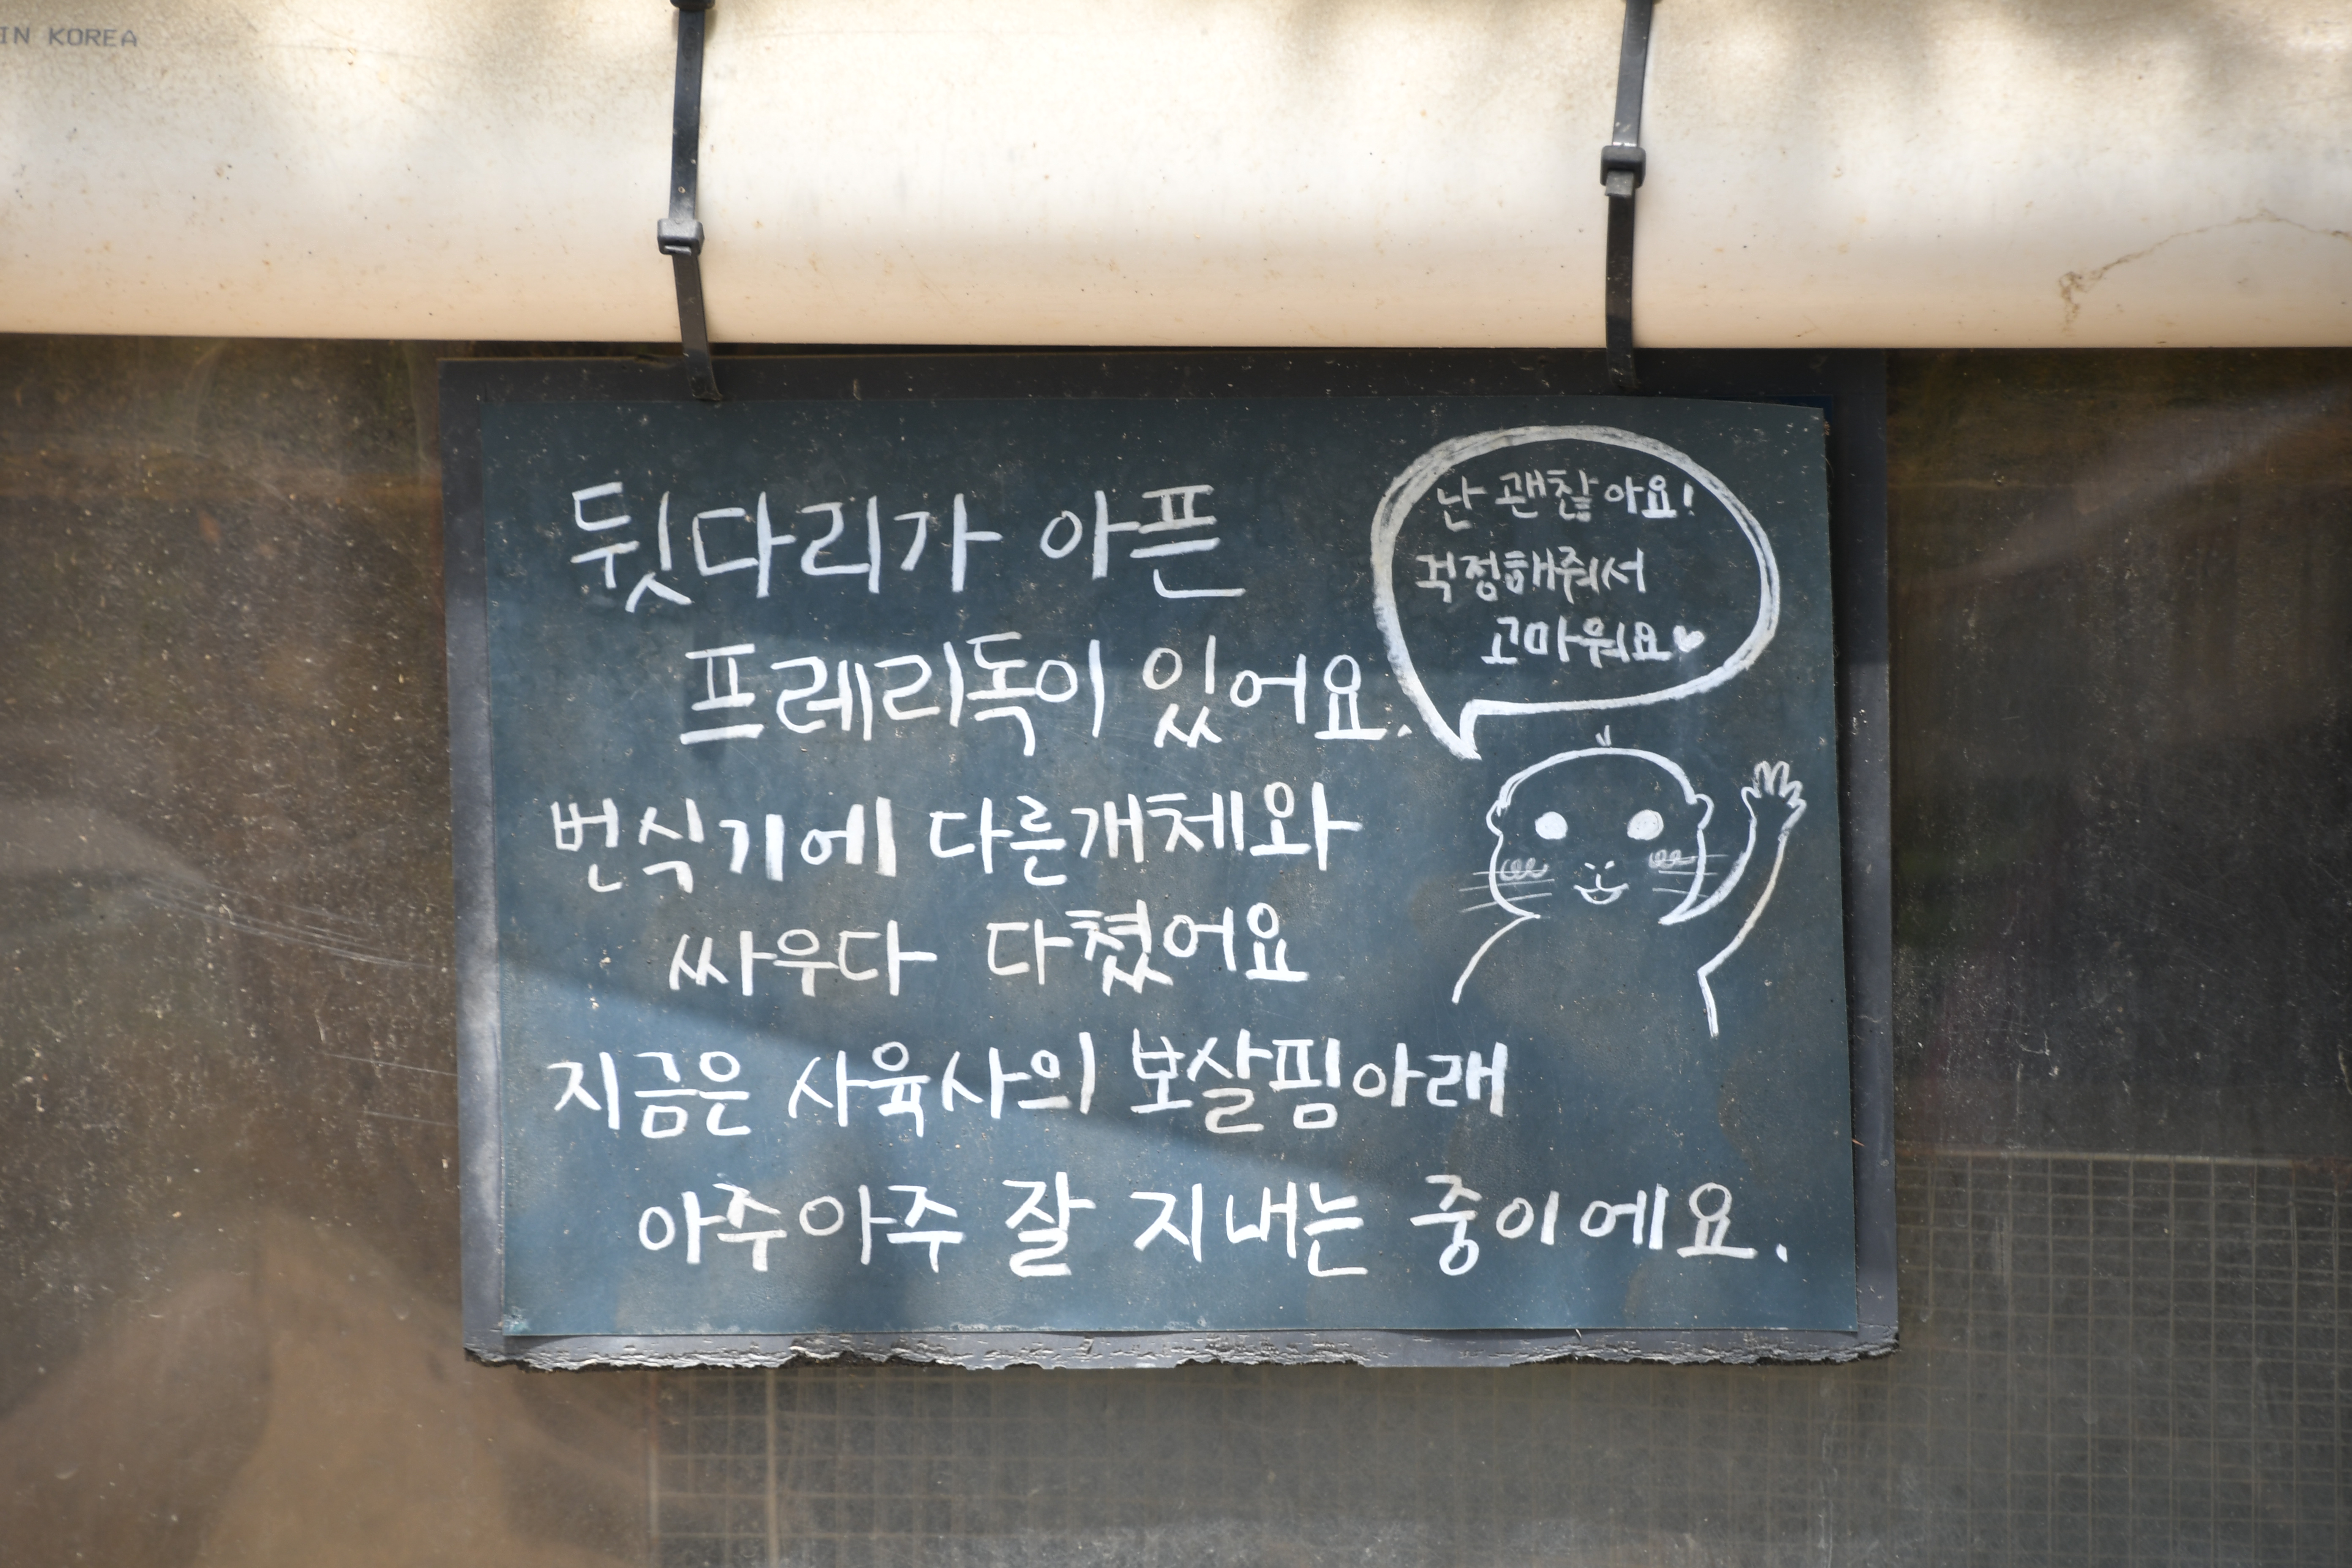 IN KOREA
뒷다리가 아픈
프레리독이 있어요.
번식기에 다른개체와
싸우다 다쳤어요
지금은 사육사의 보살핌아래
아주아주 잘 지내는 중이에요.
난 괜찮아요!
걱정해줘서
고마워요♥